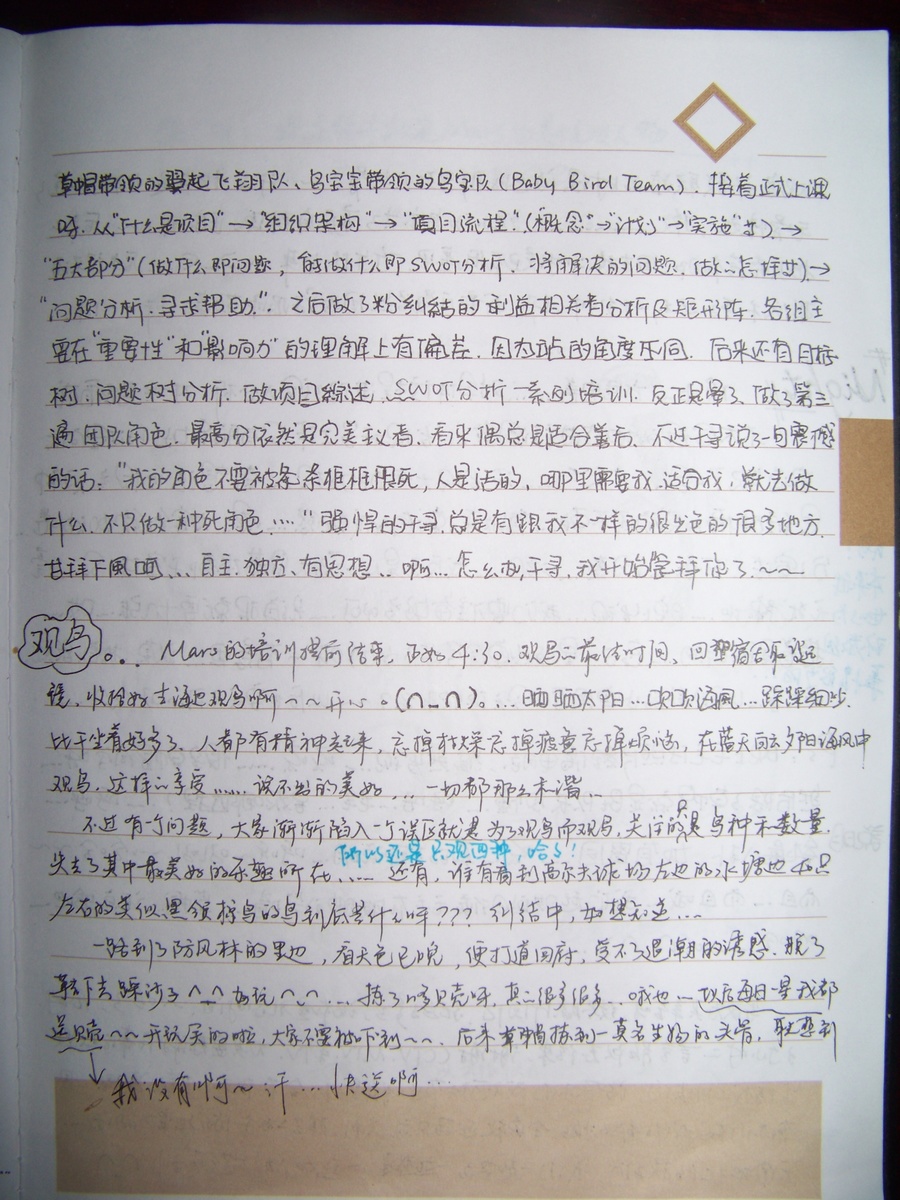 草帽带领的翼起飞翔队、鸟宝宝带领的鸟宝队(Baby Bird Team). 接着正式上课
呀. 从"什么是项目"→"组织架构"→"项目流程".("概念"→"计划"→"实施"等).→
"五大部分"(做什么即问题, 能做什么即SWOT分析. 将解决的问题. 做の怎样等)→
"问题分析. 寻求帮助." 之后做了粉纠结的利益相关者分析及矩形阵. 各组主
要在"重要性"和"影响力"的理解上有偏差. 因为站的角度不同. 后来还有目标
树. 问题树分析. 做项目综述. SWOT分析一系列培训. 反正是晕了. 做了第三
遍团队角色. 最高分依然是完美主义者. 看来偶总是适合善后. 不过千寻说了一句震撼
的话: "我的角色不要被条条框框限死, 人是活的, 哪里需要我. 适合我, 就去做
什么. 不只做一种死角色...." 强悍的千寻. 总是有跟我不一样的很出色的很多地方.
甘拜下風呵... 自主. 独立、有思想.. 啊... 怎么办, 千寻, 我开始崇拜你了.~~
观鸟。.. Mars的培训提前结束, 正好4:30. 观鸟の最佳时间. 回宿舍
收拾好去海边观鸟啊~~开心 。(∩_∩)。... 晒晒太阳...吹吹海風...踩踩细沙.
比干坐着好多了. 人都有精神起来, 忘掉枯燥忘掉疲惫忘掉烦恼, 在蓝天白云夕阳海风中
观鸟. 这样の享受...... 说不出的美好... 一切都那么和谐...
不过有一个问题, 大家渐渐陷入一个误区就是为了观鸟而观鸟, 关注的只是鸟种和数量
所以还是只观四种, 哈哈!
失去了其中最美好的乐趣所在..... 还有, 谁有看到高尔夫球场左边的水塘边40只
左右的类似黑领椋鸟的鸟到底是什么呀??? 纠结中, 好想知道...
一路到了防风林的里边, 看天色已晚, 便打道回府, 受不了退潮的诱惑. 脱了
鞋下去踩沙了^_^ 好玩^_^... 捡了好多贝壳呀, 真の很多很多... 哦也... 以后每日一星我都
送贝壳~~开玩笑的啦, 大家不要被吓到~~. 后来草帽捡到一真名生物的头骨,
我没有啊~汗... 快送啊...